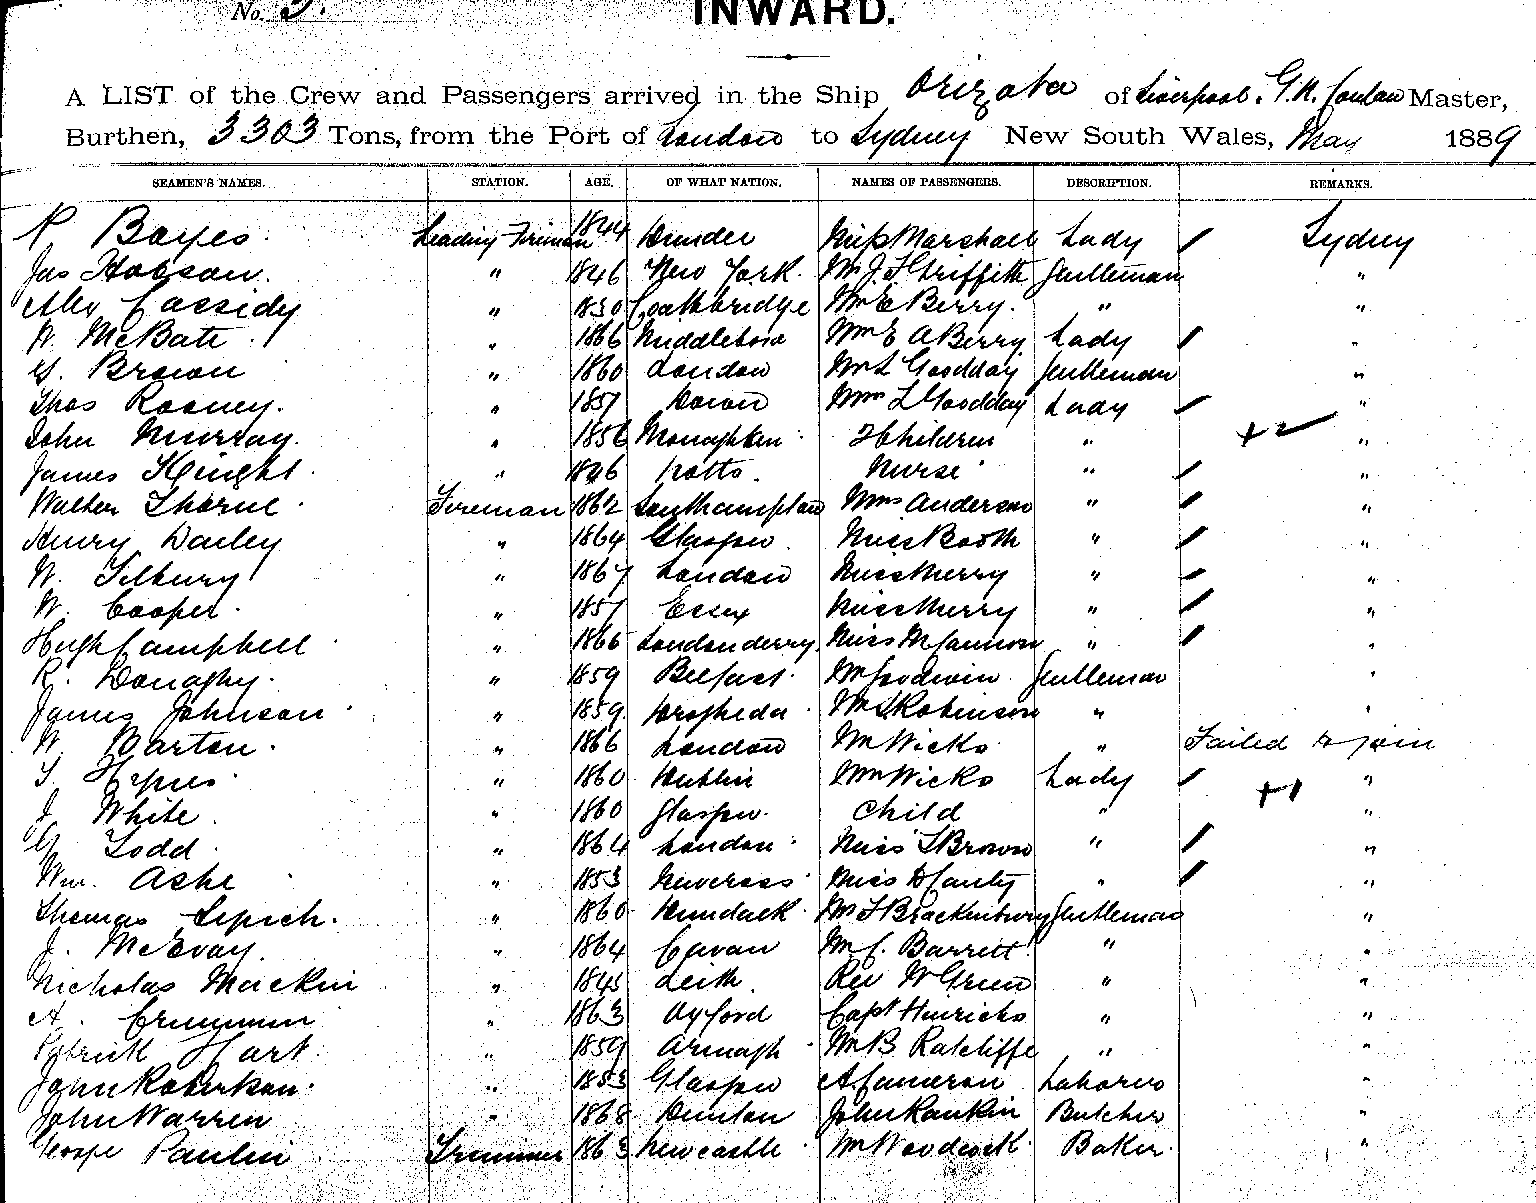 No. 3.
INWARD.
A LIST of the Crew and Passengers arrived in the Ship Orizaba of Liverpool, G.N. Conlan Master,
Burthen, 3303 Tons, from the Port of London to Sydney New South Wales, May 1889
SEAMEN'S NAMES. STATION. AGE. OF WHAT NATION. NAMES OF PASSENGERS. DESCRIPTION. REMARKS.
Bayes Leading Fireman 1844 Dundee Miss Marshall Lady Sydney
Jas Hobson " 1846 New York Mr J. F. Griffith Gentleman "
Alex Cassidy " 1850 Coatbridge Mr E Berry " "
W. McBate " 1866 Mrs E A Berry Lady "
G. Brown " 1860 London Mr L Goodday Gentleman "
Thos Rooney " 1857 Down Mrs L Goodday Lady "
John Murray " 1856 Monaghan Children " + 2 "
James Knight " 1846 Notts Nurse " "
Walter Thorne Fireman 1862 Southampton Mrs Anderson " "
Henry Dailey " 1864 Glasgow Miss Booth " "
W. Tilbury " 1867 London Miss Merry " "
W. Cooper " 1857 Essex Miss Merry " "
Hugh Campbell " 1866 Londonderry Miss McCannon " "
R. Donaghy " 1859 Belfast Mr Goodwin Gentleman "
James Johnson " 1859 Drogheda Mr S Robinson " "
W. Barton " 1866 London Mr Wicks " Failed to join
T. Hynes " 1860 Dublin Mrs Wicks Lady "
J. White " 1860 Glasgow Child " +1 "
G. Todd " 1864 London Miss S Brown " "
Wm. Ashe " 1853 Inverness Miss D Canty " "
Thomas " 1860 Dundalk Mr F Brackenbury Gentleman "
J. McEvay " 1864 Cavan Mr C. Barrett " "
Nicholas Mackin " 1845 Leith Rev W Green " "
A. " 1863 Oxford Capt Hinrichs " "
Patrick Hart " 1859 Armagh Mr B Ratcliffe " "
John Robertson " 1853 Glasgow A Cameron Laborer "
John Warren " 1868 John Rankin Butcher "
George Paulin Trimmer 1863 Newcastle Mr Woodcock Baker "